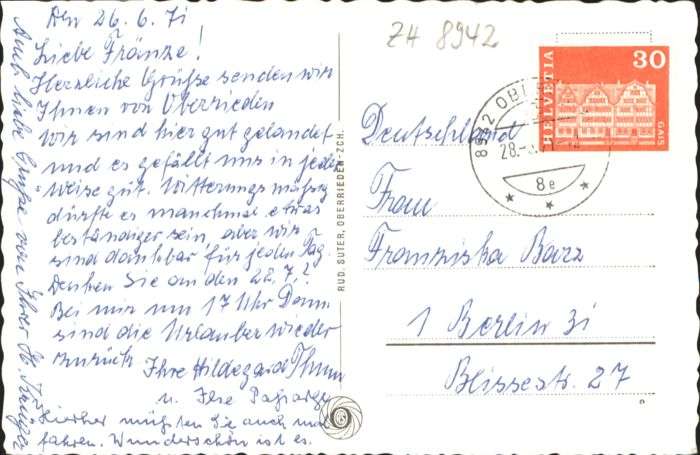 Den 26. 6. 71
Liebe Fränze!
Herzliche Grüße senden wir
Ihnen von Oberrieden
Wir sind hier gut gelandet
und es gefällt uns in jeder
Weise gut. Witterungsmäßig
dürfte es manchmal etwas
beständiger sein, aber wir
sind dankbar für jeden Tag.
Denken Sie an den 22. 7.?
Bei mir um 17 Uhr Dann
sind die Urlauber wieder
zurück
Ihre Hildegard Thum
u. Ilse
Hierher müßten Sie auch mal
fahren. Wunderschön ist es.
Auch liebe Grüße von Ihrer
RUD. SUTER, OBERRIEDEN-ZCH.
ZH 8942
HELVETIA
30
GAIS
8942 OBE
28.
8e
Deutschland
Frau
Franziska Barz
1 Berlin 31
Blissestr. 27